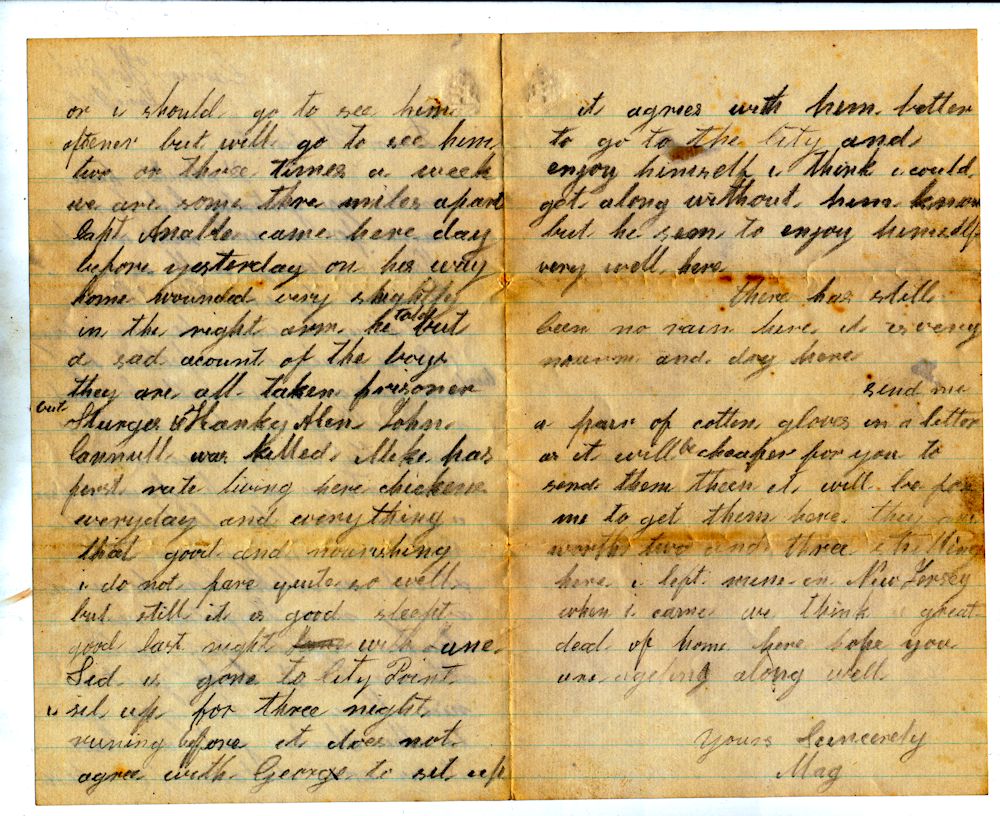 or i should go to see him
oftener but will go to see him
two or three times a week
we are some thre miles apart
Capt came here day
before yesterday on his way
home wounded very slightly
in the right arm he told but
a sad acount of the boys
they are all taken prisoner
but Sturges & Hanky Alen John
was killed Mike has
first rate living here chickens
everyday and everything
that good and nourishing
i do not fare quite so well
but still it is good sleept
good last night with June
Sid is gone to City Point
i sit up for three night
runing before it does not
agree with George to set up
it agrees with him better
to go to the City and
enjoy himself i think i could
get along without him know
but he seem to enjoy himself
very well here
there has still
been no rain here it is very
warm and dry here
send me
a pair of cotten gloves in a letter
as it will be cheaper for you to
send them then it will be for
me to get them here they are
worth two and three shilling
here i left mine in New Jersey
when i came we think a great
deal of home here hope you
are along well
Yours Sincerely
Mag